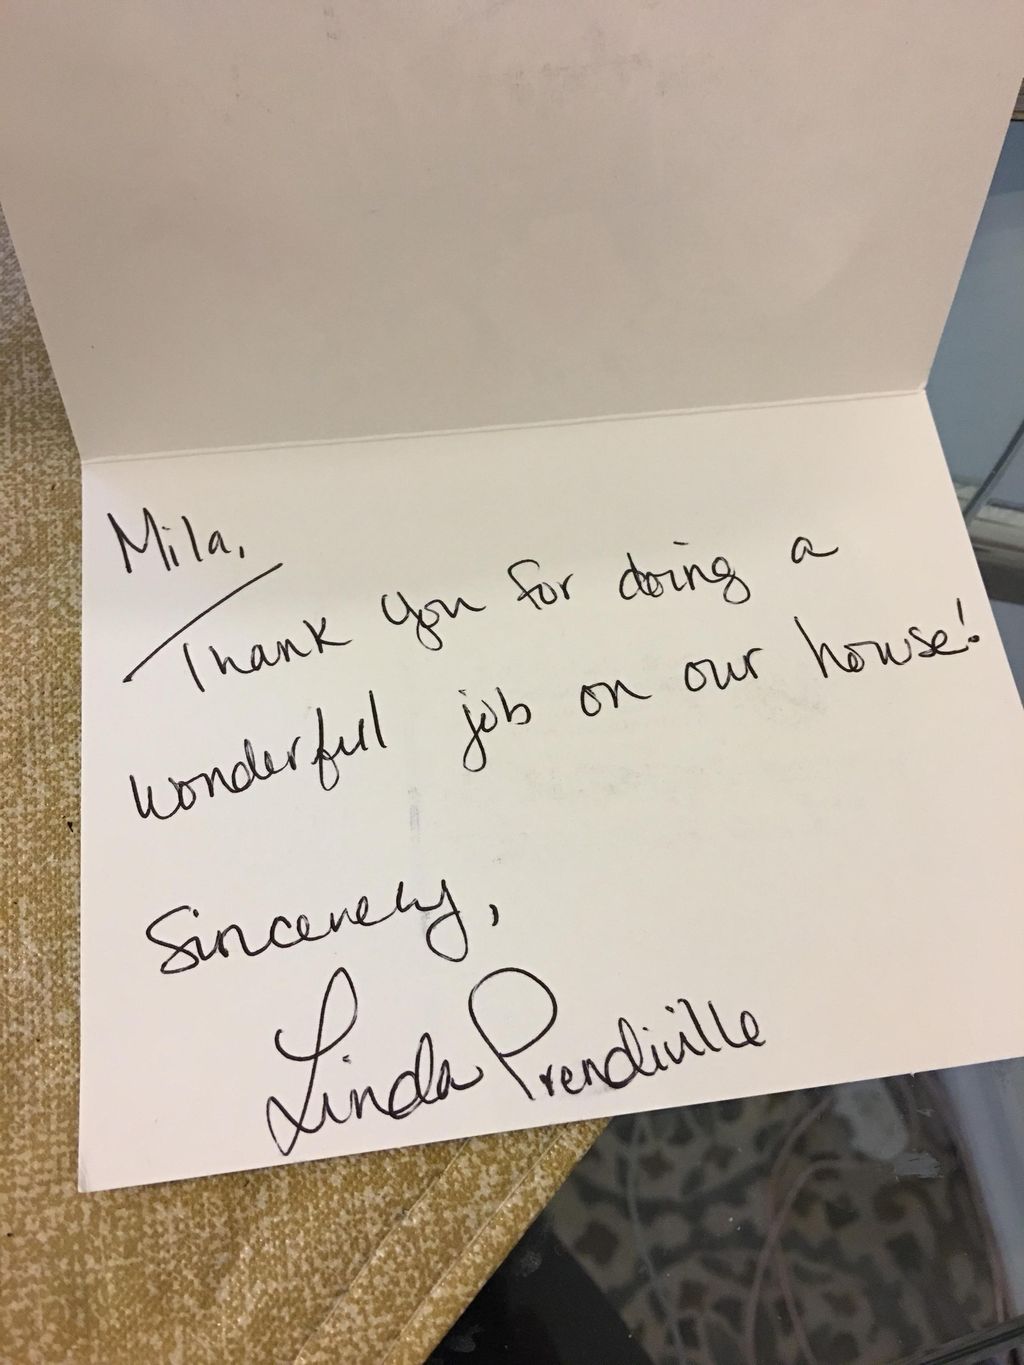 Mila,
Thank you for doing a
wonderful job on our house!
Sincerely,
Linda Prendiville